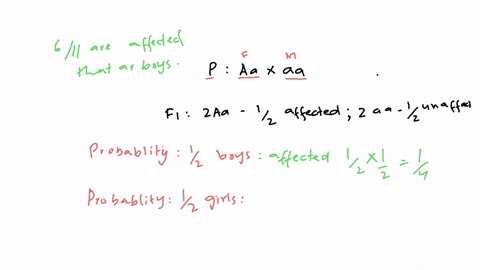 6/11 are affected
that ar boys.
F M
P : Aa x aa
F1 : 2Aa - 1/2 affected ; 2 aa - 1/2 unaffect
Probablity : 1/2 boys : affected 1/2 x 1/2 = 1/4
Probablity : 1/2 girls :